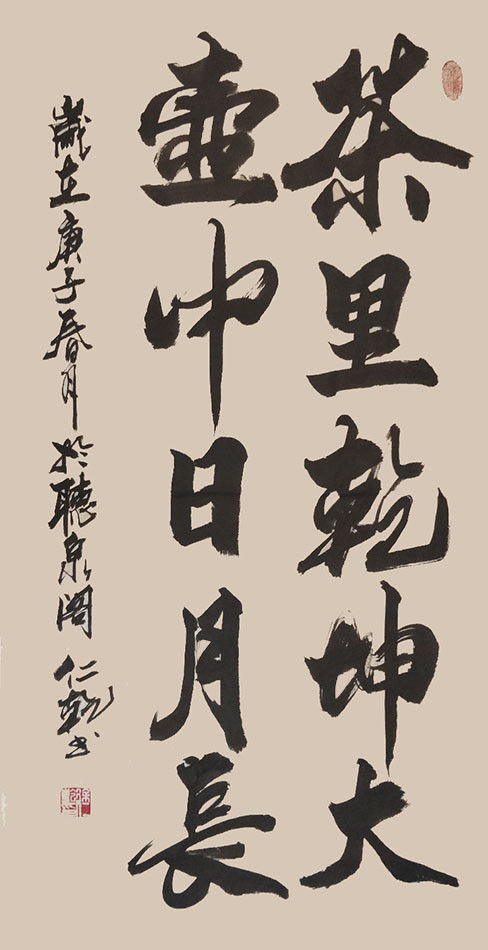 茶里乾坤大
壶中日月長
歲在庚子春月於聽泉阁仁乾书